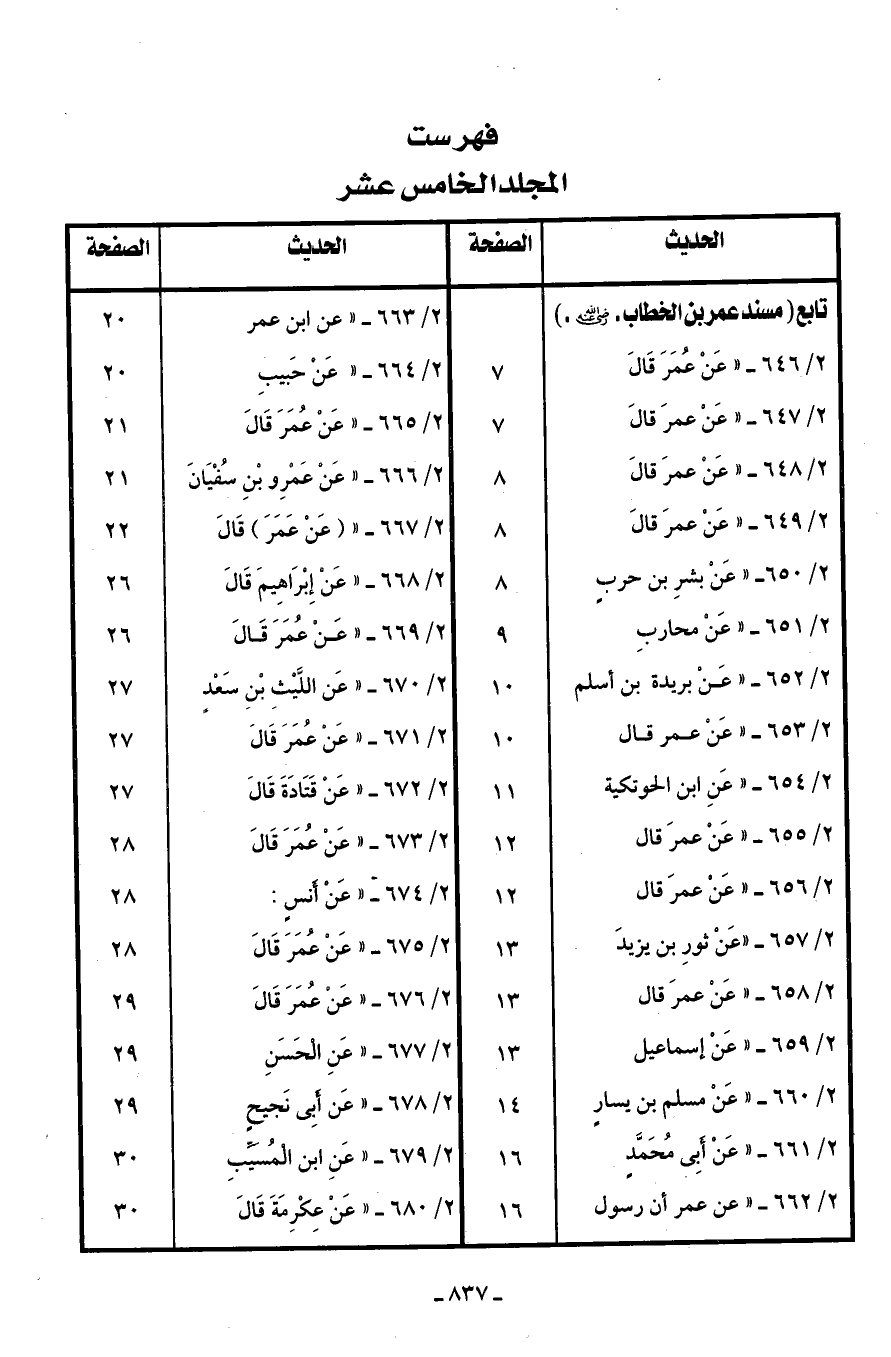 فهرست
المجلد الخامس عشر
الحديث الصفحة
تابع ( مسند عمر بن الخطاب . رضي الله عنه . )
٢/ ٦٤٦ ـ « عَنْ عُمَرَ قَالَ ٧
٢/ ٦٤٧ ـ « عَنْ عمرَ قالَ ٧
٢/ ٦٤٨ ـ « عَنْ عمرَ قالَ ٨
٢/ ٦٤٩ ـ « عَنْ عمرَ قالَ ٨
٢/ ٦٥٠ـ « عَنْ بشرِ بن حربٍ ٨
٢/ ٦٥١ ـ « عَنْ محاربِ ٩
٢/ ٦٥٢ ـ « عَـنْ بريدة بن أسلم ١٠
٢/ ٦٥٣ ـ « عَنْ عـمر قـال ١٠
٢/ ٦٥٤ ـ « عَنِ ابن الحوتكية ١١
٢/ ٦٥٥ ـ « عَنْ عمرَ قال ١٢
٢/ ٦٥٦ ـ « عَنْ عمرَ قال ١٢
٢/ ٦٥٧ ـ «عَنْ ثورِ بن يزيدَ ١٣
٢/ ٦٥٨ ـ « عَنْ عمرَ قال ١٣
٢/ ٦٥٩ ـ « عَنْ إسماعيل ١٣
٢/ ٦٦٠ ـ « عَنْ مسلم بن يسارٍ ١٤
٢/ ٦٦١ ـ « عَنْ أَبِى مُحَمَّدٍ ١٦
٢/ ٦٦٢ ـ « عن عمر أن رسول ١٦
الحديث الصفحة
٢/ ٦٦٣ ـ « عن ابن عمر ٢٠
٢/ ٦٦٤ ـ « عَنْ حَبِيبِ ٢٠
٢/ ٦٦٥ ـ « عَنْ عُمَرَ قَالَ ٢١
٢/ ٦٦٦ ـ « عَنْ عَمْرِو بْنِ سُفْيَانَ ٢١
٢/ ٦٦٧ ـ « ( عَنْ عَمَرَ ) قَالَ ٢٢
٢/ ٦٦٨ ـ « عَنْ إِبْرَاهِيمَ قَالَ ٢٦
٢/ ٦٦٩ ـ « عَـنْ عُمَرَ قَـالَ ٢٦
٢/ ٦٧٠ ـ « عَنِ اللَّيْثِ بْنِ سَعْدٍ ٢٧
٢/ ٦٧١ ـ « عَنْ عُمَرَ قَالَ ٢٧
٢/ ٦٧٢ ـ « عَنْ قَتَادَةَ قَالَ ٢٧
٢/ ٦٧٣ ـ « عَنْ عُمَرَ قَالَ ٢٨
٢/ ٦٧٤ ـ « عَنْ أَنَسٍ : ٢٨
٢/ ٦٧٥ ـ « عَنْ عُمَرَ قَالَ ٢٨
٢/ ٦٧٦ ـ « عَنْ عُمَرَ قَالَ ٢٩
٢/ ٦٧٧ ـ « عَنِ الْحَسَنِ ٢٩
٢/ ٦٧٨ ـ « عَن أَبِى نَجِيحٍ ٢٩
٢/ ٦٧٩ ـ « عَنِ ابن الْمُسَيَّبِ ٣٠
٢/ ٦٨٠ ـ « عَنْ عِكْرِمَةَ قَالَ ٣٠
ـ ٨٣٧ ـ